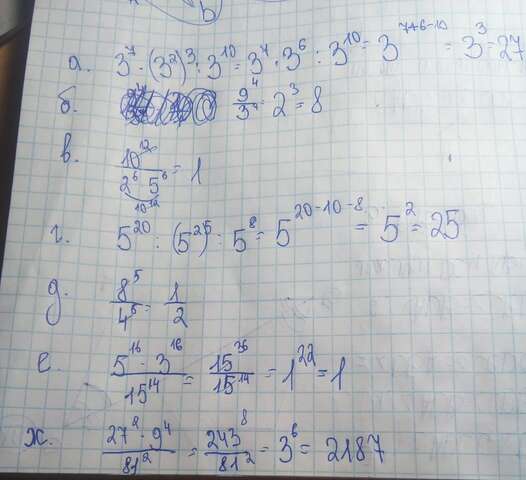 а. 3⁷ · (3²)³ : 3¹⁰ = 3⁷ · 3⁶ : 3¹⁰ = 3⁷⁺⁶⁻¹⁰ = 3³ = 27
б. 9⁴/3⁴ = 2³ = 8
в. 10¹²/2⁶ 5⁶ = 1
10¹²
г. 5²⁰ : (5²)⁵ : 5⁸ = 5²⁰⁻¹⁰⁻⁸ = 5² = 25
д. 8⁵/4⁵ = 1/2
е. 5¹⁶ · 3¹⁶/15¹⁴ = 15³⁶/15¹⁴ = 1²² = 1
ж. 27² · 9⁴/81² = 243⁸/81² = 3⁶ = 2187